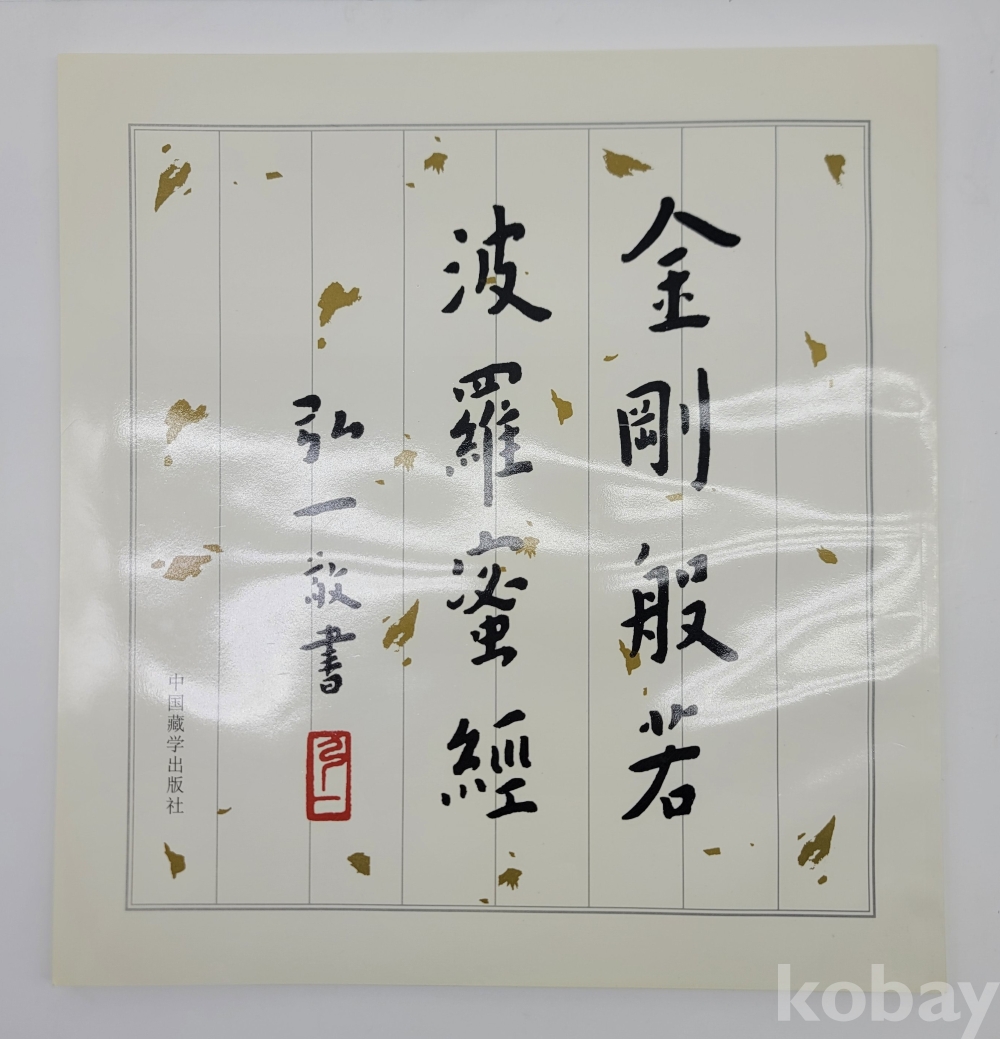 金剛般若
波羅蜜經
弘一敬書
中国藏学出版社
kobay